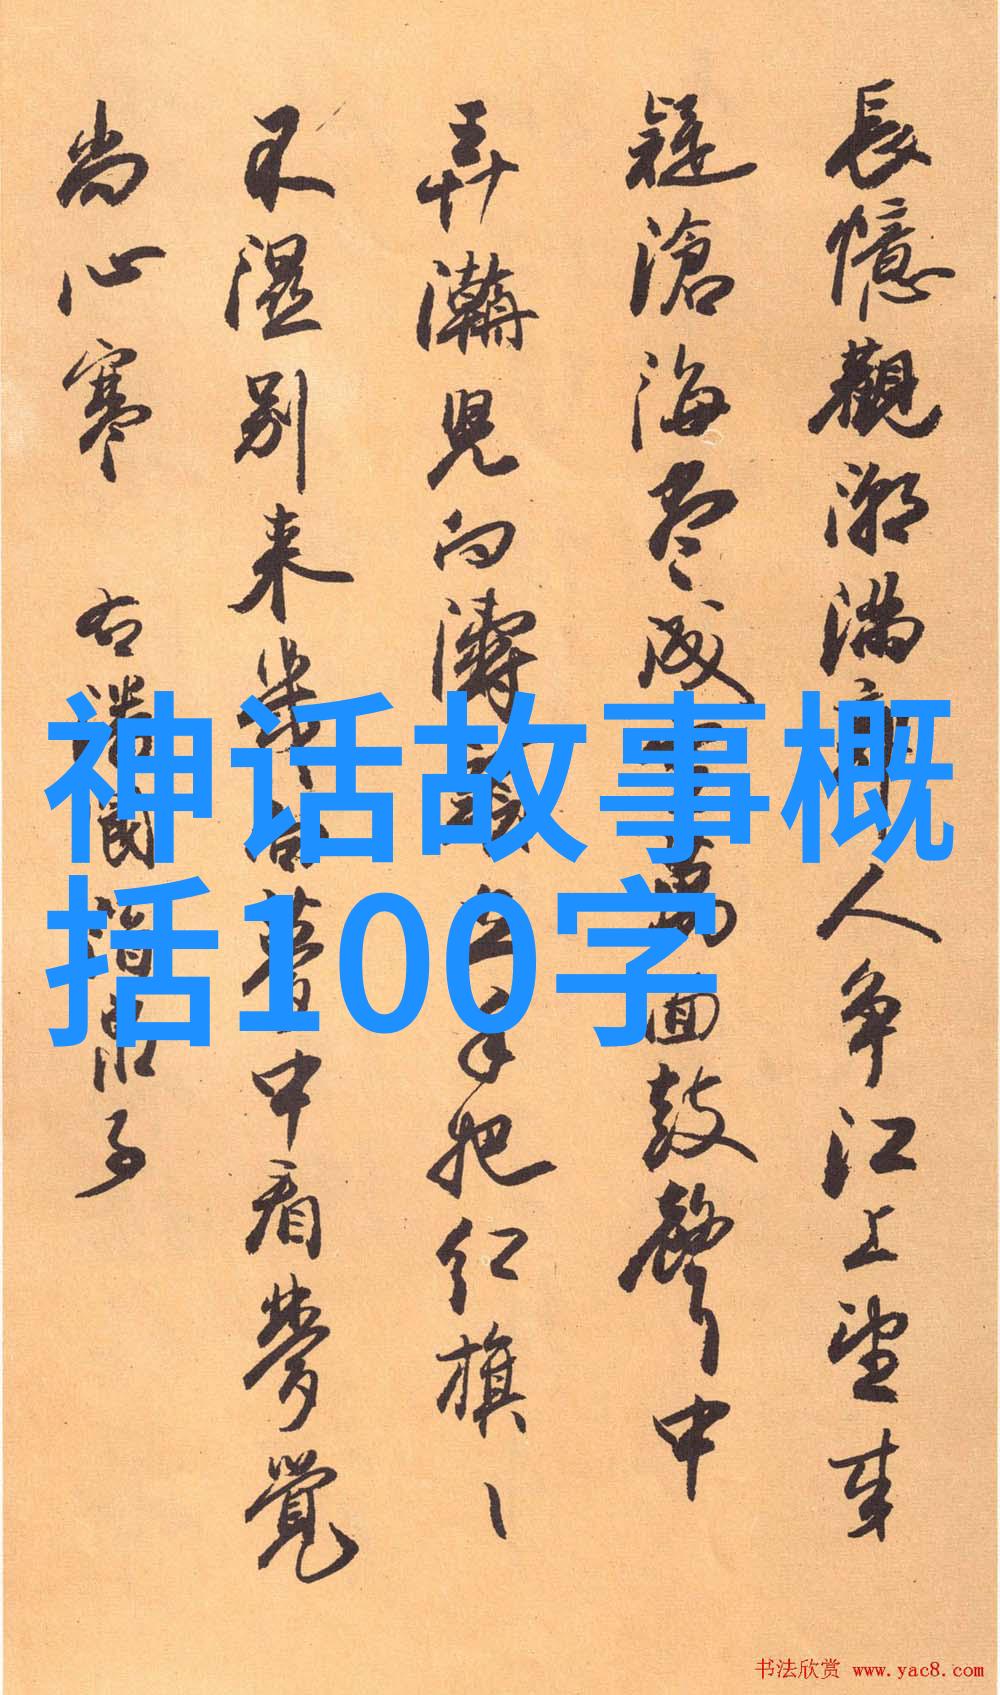 長憶觀潮滿郭人爭江上望来
疑滄海盡成空萬面鼓聲中
弄濤兒向濤頭立手把红旗〻
不濕別来幾向夢中看夢覺
尚心寒 右潘閬酒泉子
神话故事概
括100字
书法欣赏 www.yac8.com